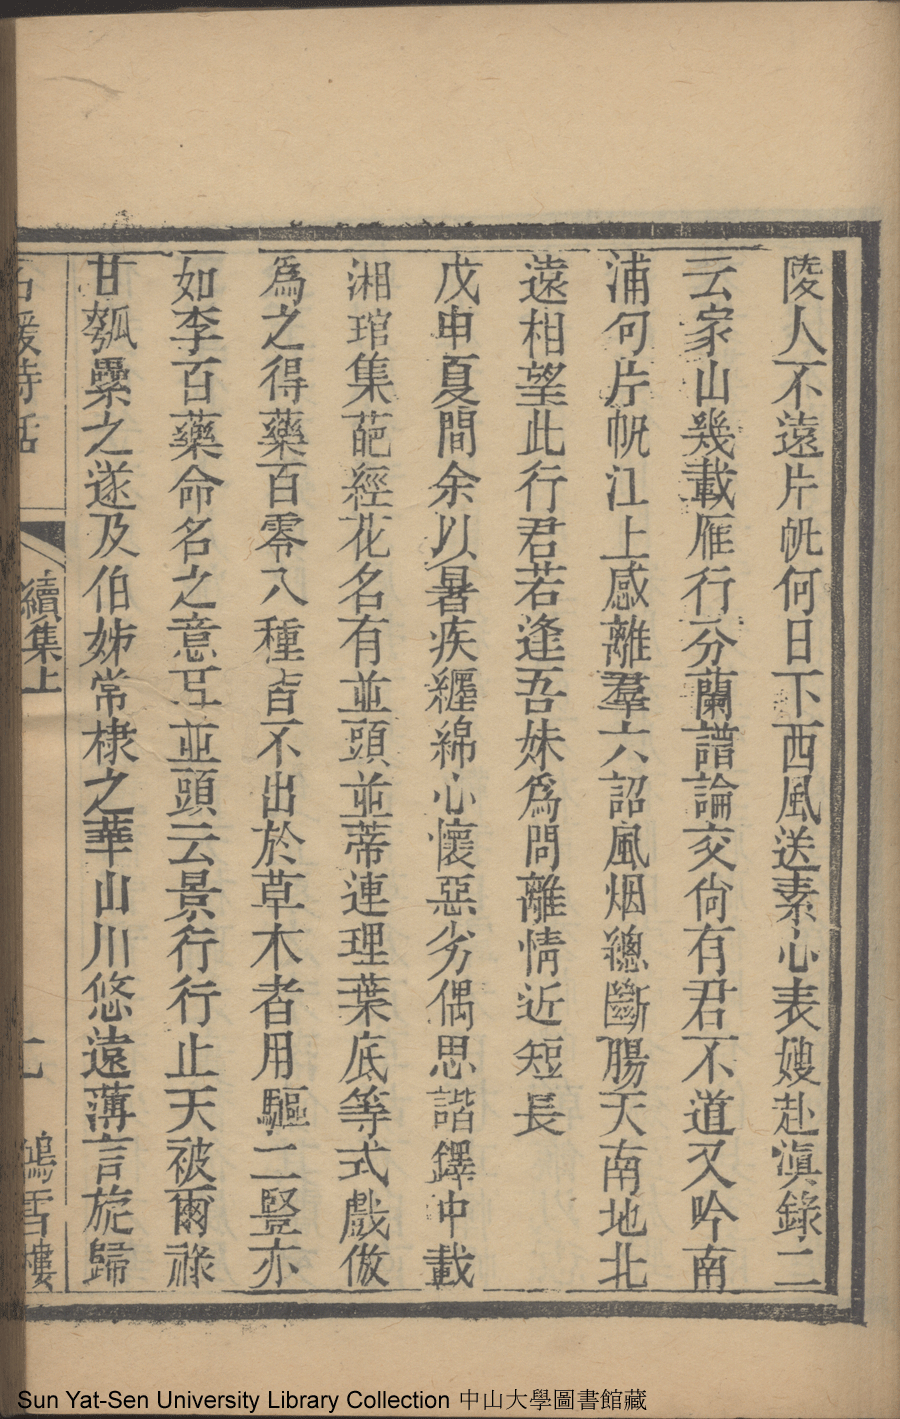 陵人不遠片帆何日下西風送素心表嫂赴滇錄二
云家山幾載雁行分蘭譜論交尙有君不道又吟南
浦句片帆江上感離羣六詔風烟總斷腸天南地北
遠相望此行君若逢吾妹爲問離情近短長
戊申夏間余以暑疾纏綿心懷惡劣偶思諧鐸中載
湘琯集葩經花名有並頭並蒂連理葉底等式戲倣
爲之得藥百零八種皆不出於草木者用驅二豎亦
如李百藥命名之意耳並頭云景行行止天被爾祿
甘瓠纍之遂及伯姊常棣之華山川悠遠薄言旋歸
名媛詩話 續集上 七 鴻雪樓
Sun Yat-Sen University Library Collection 中山大學圖書館藏